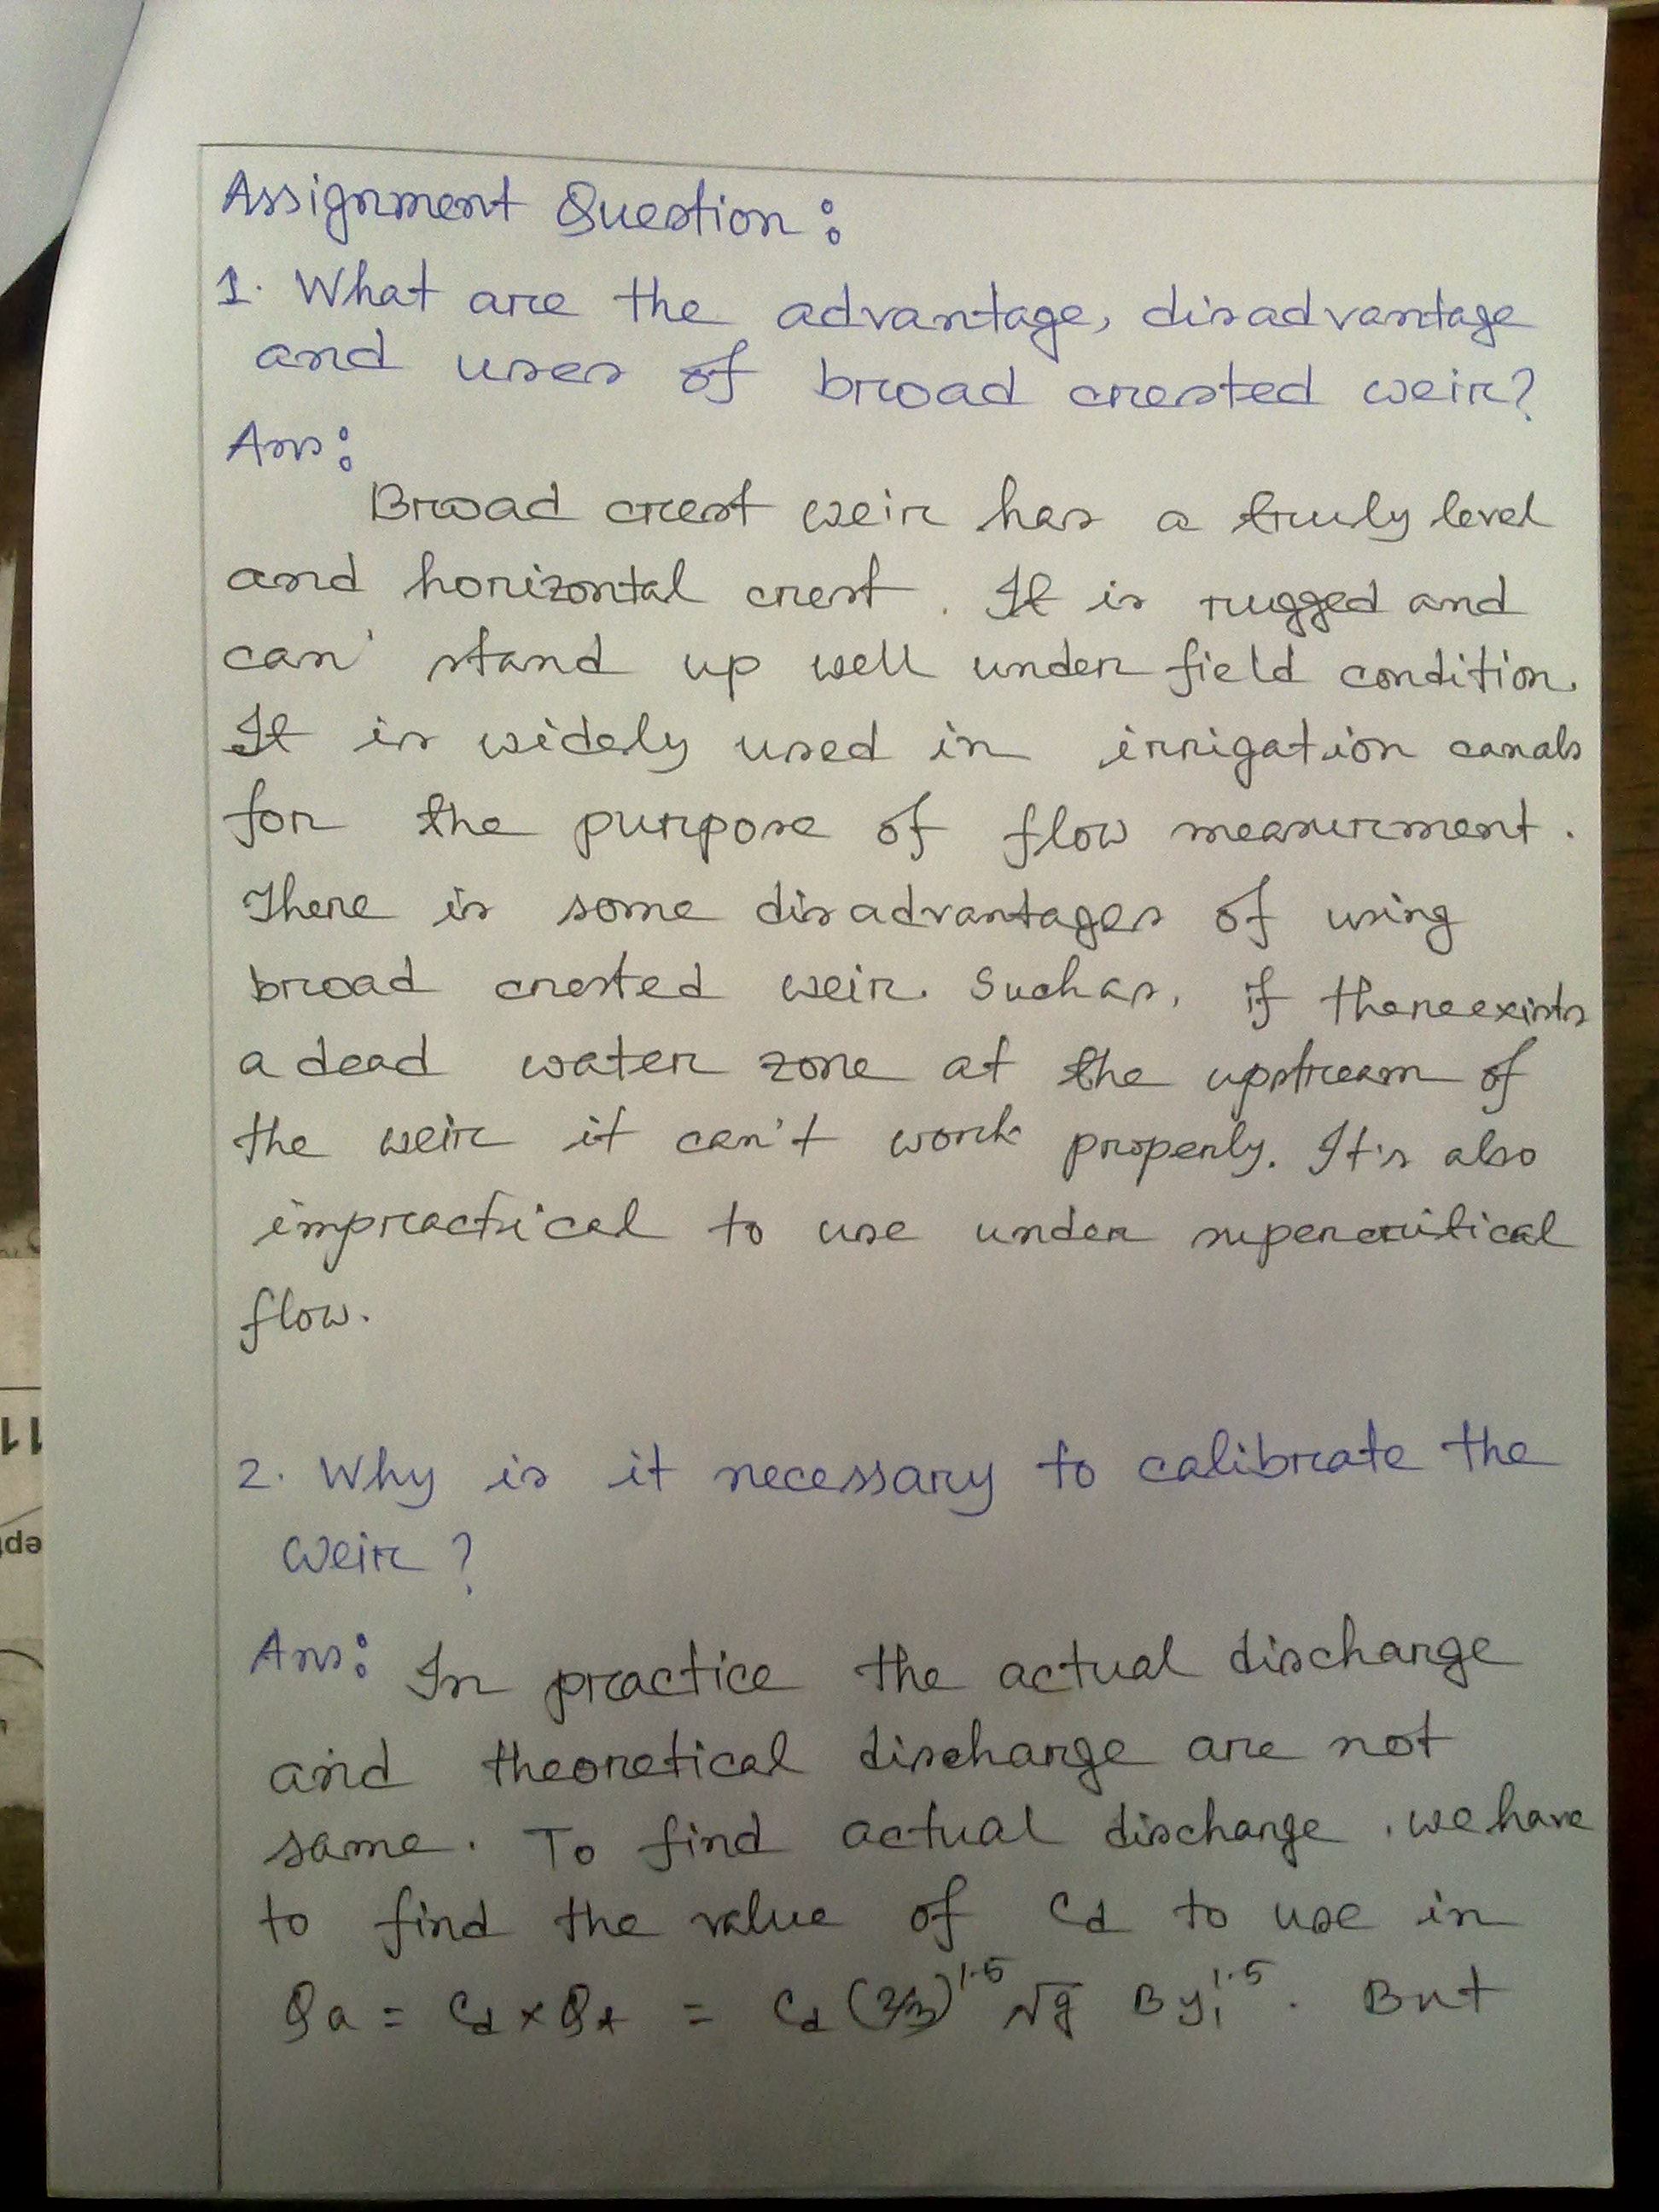 Assignment Question :
1. What are the advantage, disadvantage
and uses of broad crested weir?
Ans:
Broad crest weir has a truly level
and horizontal crest. It is rugged and
can stand up well under field condition.
It is widely used in irrigation canals
for the purpose of flow measurement.
There is some disadvantages of using
broad crested weir. Such as, if there exists
a dead water zone at the upstream of
the weir it can't work properly. It's also
impractical to use under supercritical
flow.
2. Why is it necessary to calibrate the
weir ?
Ans: In practice the actual discharge
and theoretical discharge are not
same. To find actual discharge, we have
to find the value of Cd to use in
Qa = Cd x Qt = Cd (2/3)^1.5 √g B y₁^1.5. But
11
ept